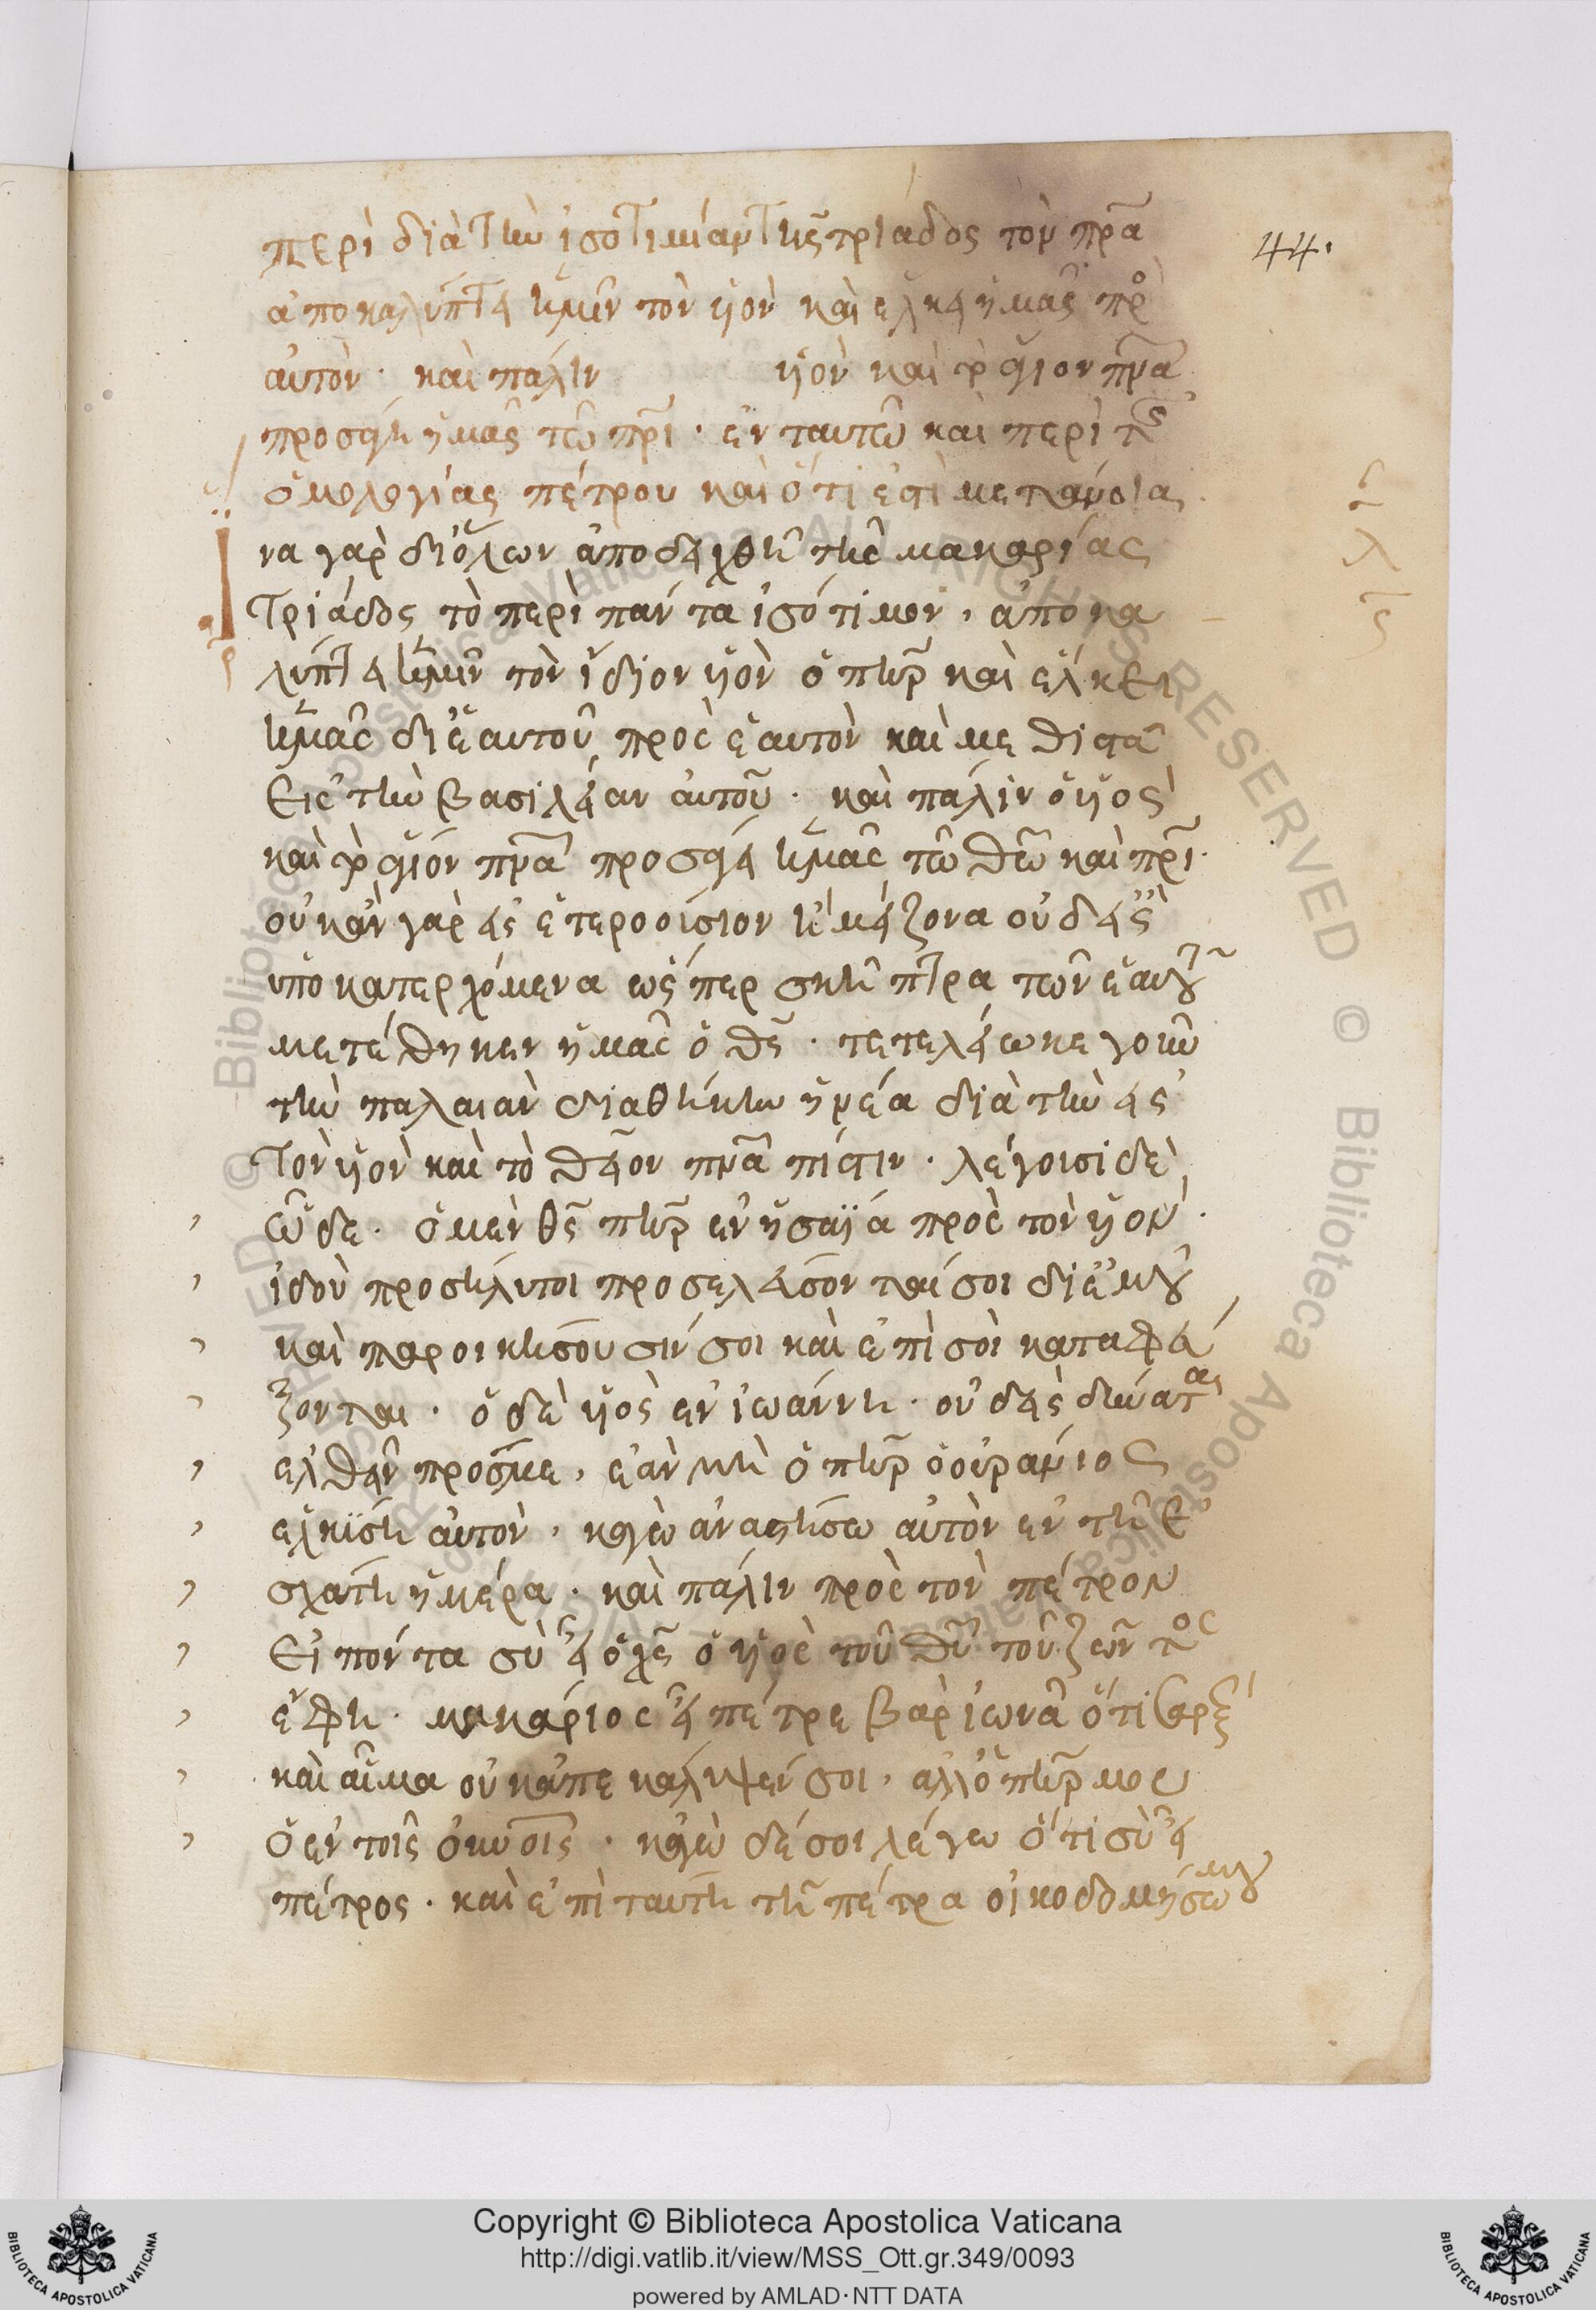 περὶ διὰ τὴν ἰσοτιμίαν τῆς τριάδος τὸν πρα
44.
ἀποκαλύπτει ἡμῖν τὸν υἱὸν καὶ ἕλκει ἡμᾶς πρὸ
αὐτὸν · καὶ πάλιν υἱὸν καὶ πρα
προσάγη ἡμᾶς τῶ πρι · ἐν ταυτῶ καὶ περὶ τῆς
ὁμολογίας πέτρου καὶ ὅτι ἐστὶ μετάνοια
να γὰρ δι' ὅλων ἀποδειχθῆ τῆς μακαρίας
Τριάδος τὸ περὶ πάντα ἰσότιμον , ἀποκα
λύπτει ἡμῖν τὸν ἴδιον υἱὸν ὁ πηρ καὶ ἕλκει
ἡμᾶς δι' ἑαυτοῦ πρὸς ἑαυτὸν καὶ μεθιστᾶ
εἰς τὴν βασιλείαν αὐτοῦ · καὶ πάλιν ὁ υἱὸς
καὶ πρα προσάγει ἡμᾶς τῶ θεῶ καὶ πρι ·
οὐκ ἂν γὰρ εἰς ἑτεροούσιον ἢ μείζονα οὐδ' εἰς
ὑποκατερχόμενα ὥσπερ σκῆπτρα τῶν ἑαυτοῦ
μετέθηκεν ἡμᾶς ὁ θς · τετελείωκε γοῦν
τὴν παλαιὰν διαθήκην ἡ νέα διὰ τὴν εἰς
τὸν υἱὸν καὶ τὸ θεῖον πνα πίστιν · λέγουσι δὲ
ὧδε · ὁ μὲν θς πηρ ἐν ἡσαΐα πρὸς τὸν υἱόν ·
ἰδοὺ προσήλυτοι προσελεύσονταί σοι δι' ἐμοῦ
καὶ παροικήσουσίν σοι καὶ ἐπὶ σοὶ καταφεύ
ξονται · ὁ δὲ υἱὸς ἐν ἰωάννη · οὐδεὶς δύναται
ἐλθεῖν πρός με , ἐὰν μὴ ὁ πηρ ὁ οὐράνιος
ἑλκύση αὐτὸν , κἀγὼ ἀναστήσω αὐτὸν ἐν τῆ ἐ
σχάτη ἡμέρα · καὶ πάλιν πρὸς τὸν πέτρον
εἰπόντα σὺ εἶ ὁ χς ὁ υἱὸς τοῦ θυ τοῦ ζῶντος
ἔφη · μακάριος εἶ πέτρε βὰρ ἰωνᾶ ὅτι σὰρξ
καὶ αἷμα οὐκ ἀπεκάλυψέν σοι , ἀλλ' ὁ πηρ μου
ὁ ἐν τοῖς οὐνοῖς · κἀγὼ δέ σοι λέγω ὅτι σὺ εἶ
πέτρος · καὶ ἐπὶ ταύτη τῆ πέτρα οἰκοδομήσω μου
Copyright © Biblioteca Apostolica Vaticana
http://digi.vatlib.it/view/MSS_Ott.gr.349/0093
powered by AMLAD·NTT DATA